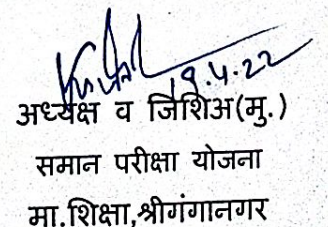 19.4.22
अध्यक्ष व जिशिअ(मु.)
समान परीक्षा योजना
मा.शिक्षा,श्रीगंगानगर